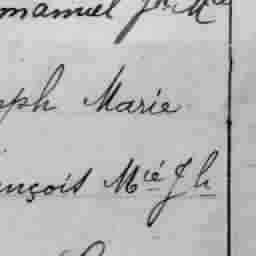 manuel Jh Mie
ph Marie
nçois Mié Jh